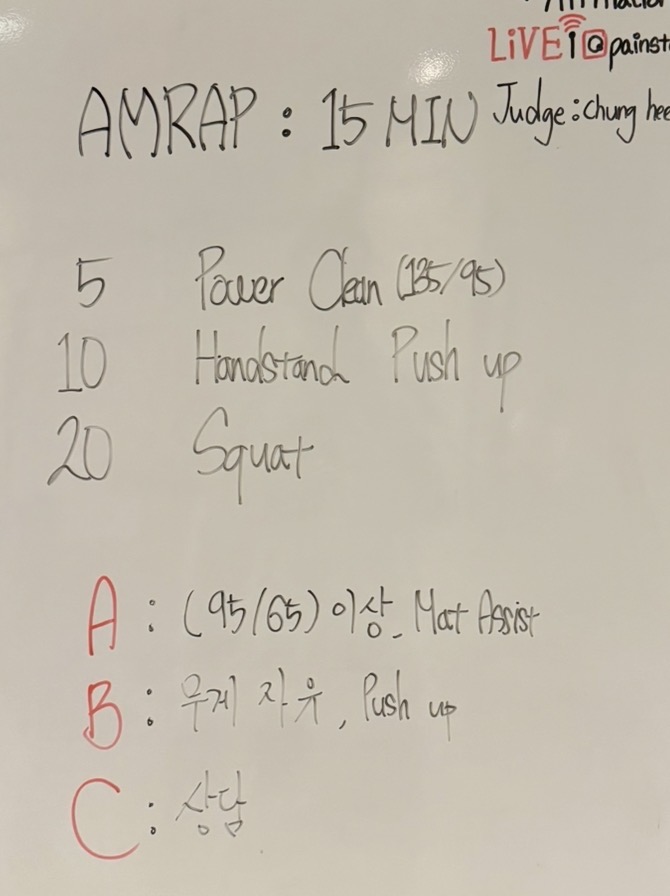 LiVE
AMRAP : 15 MIN Judge : chung hee
5 Power Clean (135/95)
10 Handstand Push up
20 Squat
A : (95/65) 이상. Mat Assist
B : 무게 자유, Push up
C : 상담